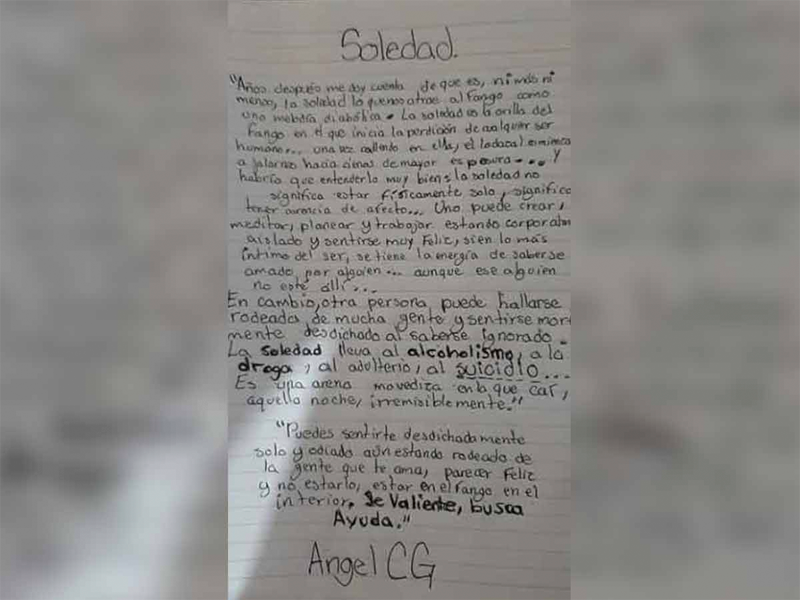 Soledad.
"Años después me doy cuenta de que es, ni más ni
menos, la soledad lo que nos atrae al fango como
una melodía diabólica. La soledad es la orilla del
fango en el que inicia la perdición de cualquier ser
humano... una vez caliendo en ella, el lodazal comienza
a jalarnos hacia cienas de mayor espesura.... Y
habría que entenderlo muy bien: la soledad no
significa estar físicamente solo, significa
tener ausencia de afecto... Uno puede crear,
meditar, planear y trabajar estando corporalm
aislado y sentirse muy Feliz, si en lo más
íntimo del ser, se tiene la energía de saberse
amado por alguien... aunque ese alguien
no esté allí...
En cambio, otra persona puede hallarse
rodeada de mucha gente y sentirse mor
mente desdichado al saberse ignorado.
La soledad lleva al alcoholismo, a la
droga, al adulterio, al suicidio...
Es una arena movediza en la que caí,
aquella noche, irremisiblemente."
"Puedes sentirte desdichadamente
solo y odiado aún estando rodeado de
la gente que te ama, parecer Feliz
y no estarlo, estar en el fango en el
interior. Se Valiente, busca
Ayuda."
Angel CG